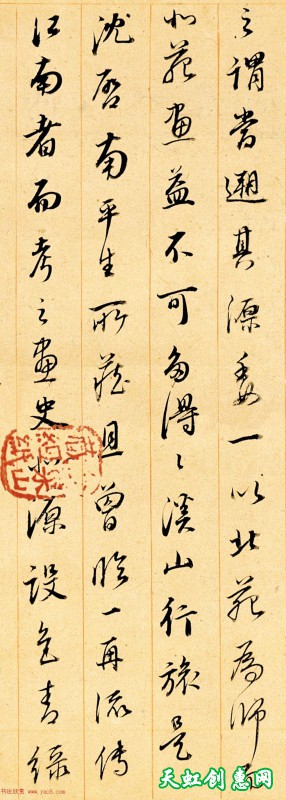 之謂嘗遡其源委一以北苑為師而
北苑畫益不可多得々溪山行旅是
沈啓南平生所藏且曾臨一再流傳
江南者而考之畫史北源設色青綠
书法欣赏 www.yac8.com
天虹创意网